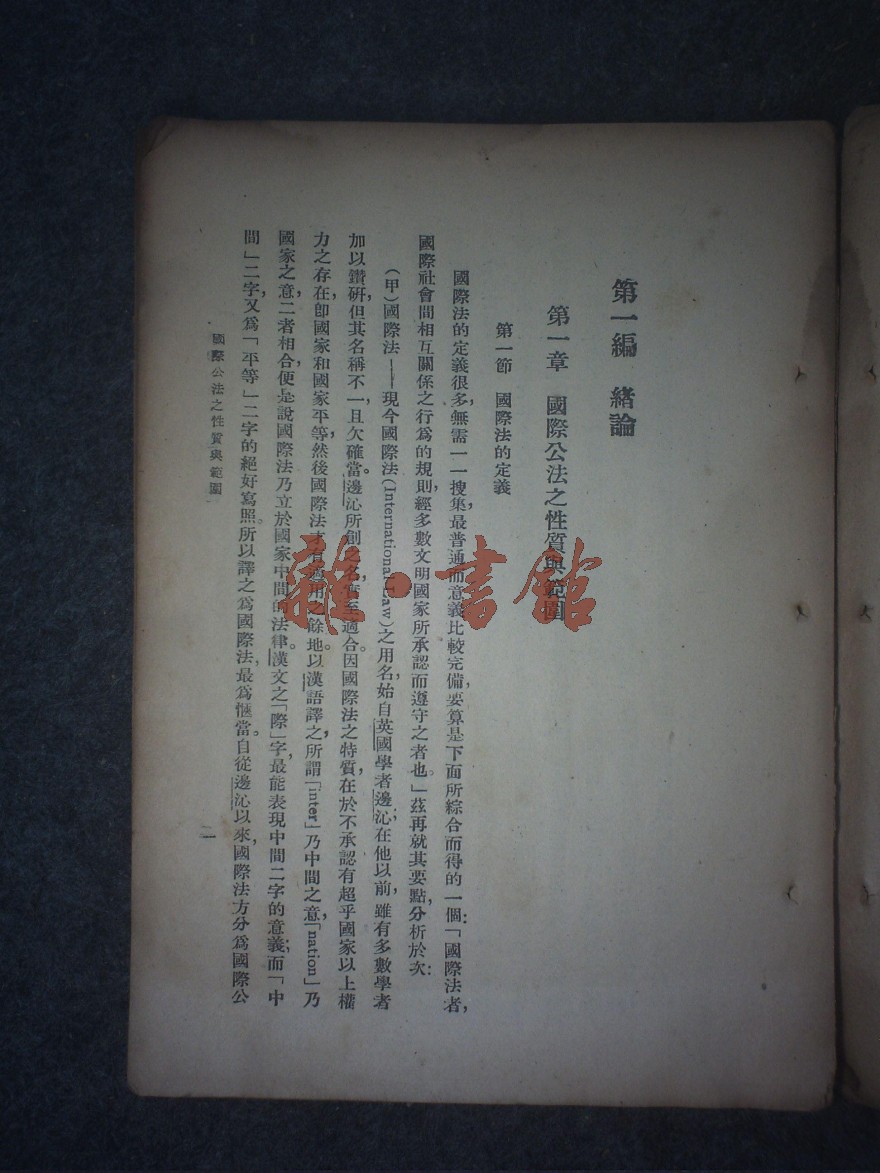 第一編　緒論
第一章　國際公法之性質與範圍
第一節　國際法的定義
國際法的定義很多，無需一一搜集，最普通而意義比較完備，要算是下面所綜合而得的一個：「國際法者，
國際社會間相互關係之行爲的規則，經多數文明國家所承認而遵守之者也。」茲再就其要點，分析於次：
（甲）國際法——現今國際法(International Law)之用名，始自英國學者邊沁；在他以前，雖有多數學者
加以鑽研，但其名稱不一，且欠確當。邊沁所創之名，實至適合。因國際法之特質，在於不承認有超乎國家以上權
力之存在，卽國家和國家平等，然後國際法才有適用之餘地。以漢語譯之，所謂「inter」乃中間之意，「nation」乃
國家之意，二者相合，便是說國際法乃立於國家中間的法律。漢文之「際」字，最能表現中間二字的意義；而「中
間」二字，又爲「平等」二字的絕好寫照。所以譯之爲國際法，最爲愜當。自從邊沁以來，國際法方分爲國際公
國際公法之性質與範圍
一
雜·書館